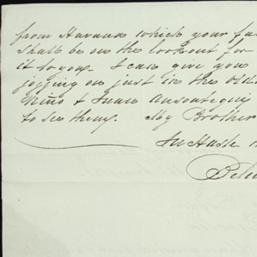 from Havana which your fa
shall be on the lookout for
it to you. I can give you
jogging on just in the old
Niño & Juan Ansoategui
to see them. My Brother
In Haste